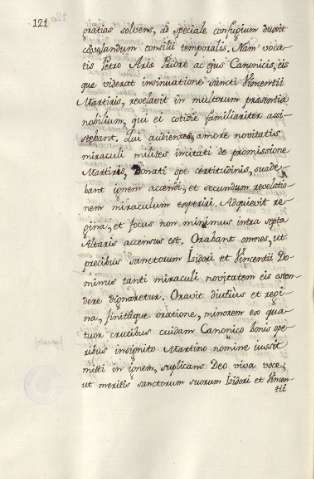 121
gratias solvens, ad speciale confugium duxit
consulendum consilii temporalis. Nam voca-
tis Petro Aris Priore ac ejus Canonicis, iis
que viderat insinuatione Sancti Vincentii
Martiris, revelavit in multorum præsentia
nobilium, qui ei cotidie familiariter assi-
stebant. Qui audientes, amore novitatis
miraculi milites incitati de promissione
Martiris, Donati spe certitudinis, suade-
bant ignem accendi, et secundum revelatio-
nem miraculum experiri. Adquievit re-
gina, et focus non minimus intra septa
Altaris accensus est. Orabant omnes, ut
precibus Sanctorum Isidori et Vincentii Do-
minus tanti miraculi novitatem eis osten-
dere dignaretur. Oravit diutius et regi-
na, finitaque oratione, minorem ex qua-
tuor crucibus cuidam Canonico bonis ope-
ribus insignito Martino nomine iussit
mitti in ignem, suplicans Deo viva voce,
ut meritis sanctorum suorum Isidori et Vincen-
tii